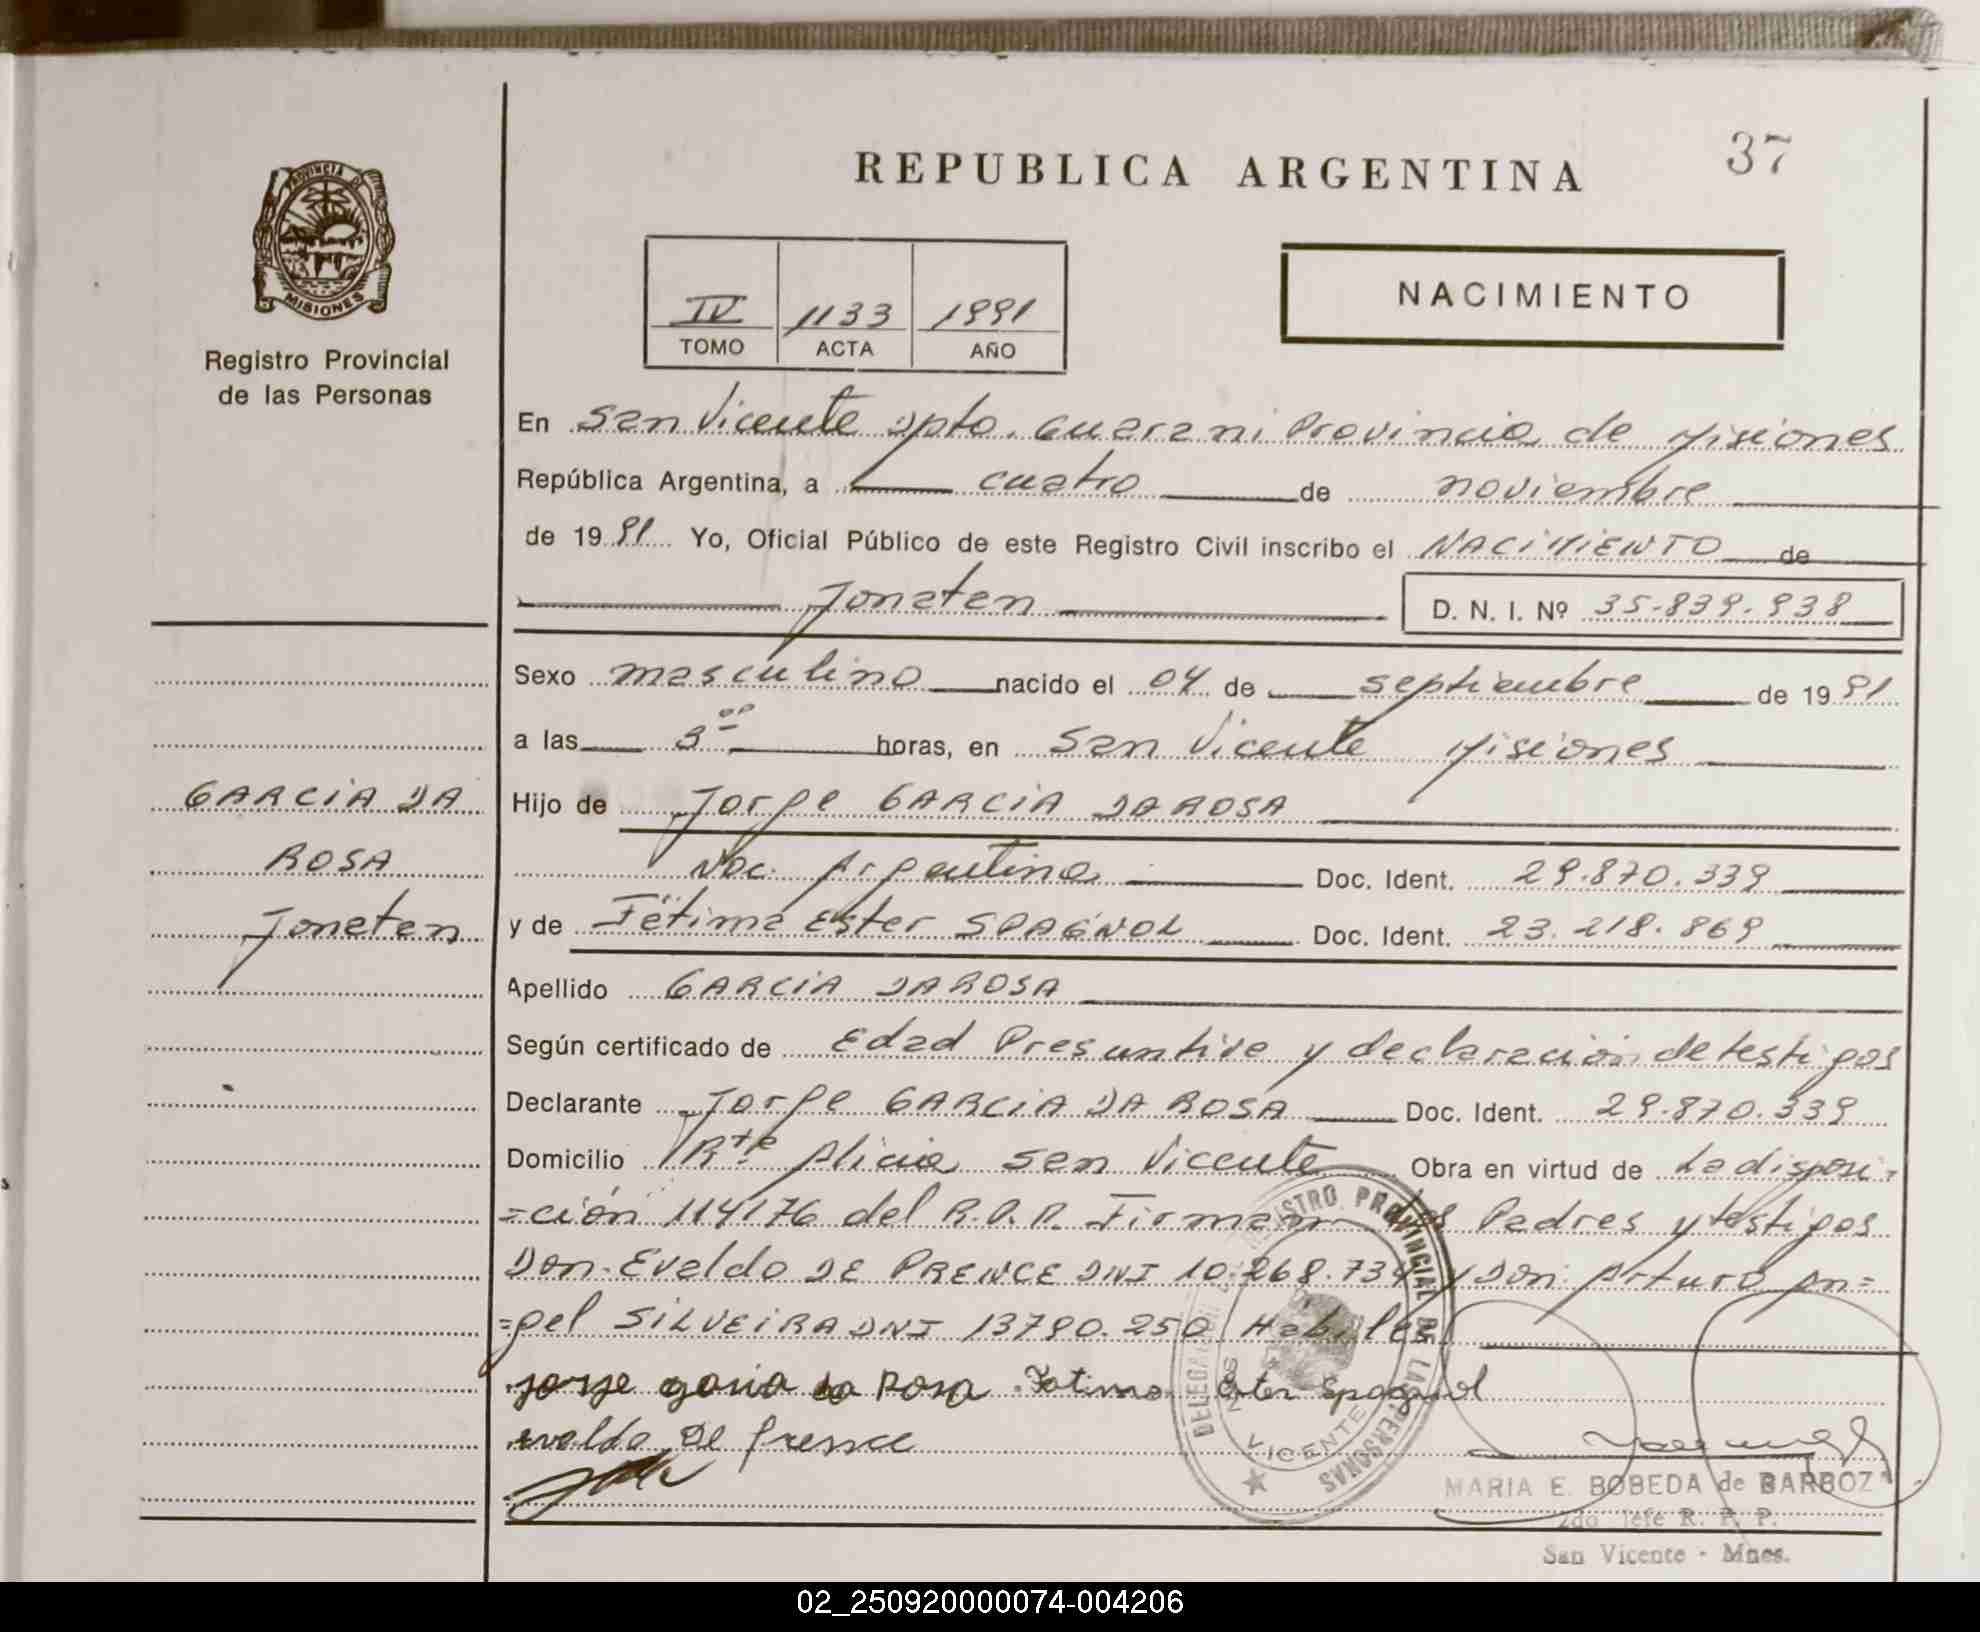 37
REPUBLICA ARGENTINA
PROVINCIA DE
MISIONES
Registro Provincial
de las Personas
NACIMIENTO
IV 1133 1991
TOMO ACTA AÑO
En San Vicente Dpto. Guarani Provincia de Misiones
República Argentina, a cuatro de noviembre
de 1991 Yo, Oficial Público de este Registro Civil inscribo el NACIMIENTO de
Jonatan D. N. I. Nº 35.839.938
Sexo masculino nacido el 04 de septiembre de 1991
a las 3 00 horas, en San Vicente Misiones
GARCIA DA
ROSA
Jonatan
Hijo de Jorge GARCIA DA ROSA
Nac. Argentina Doc. Ident. 29.870.339
y de Fátima Ester SPAGNOL Doc. Ident. 23.218.869
Apellido GARCIA DA ROSA
Según certificado de Edad Presuntiva y declaración de testigos
Declarante Jorge GARCIA DA ROSA Doc. Ident. 29.870.339
Domicilio Rte Alicia San Vicente Obra en virtud de La disposi-
=ción 114176 del R.P.P. Firman los Padres y testigos
Don. Evaldo DE PRENCE DNI 10.268.734 y Don Arturo An=
=gel SILVEIRA DNI 13790.250 Hábiles
jorge garia da Rosa Fatima Ester Spagnol
evaldo De Prence
REGISTRO PROVINCIAL DE LAS PERSONAS
DELEGACION
VICENTE
MARIA E. BOBEDA de BARBOZA
2do Jefe R. P. P.
San Vicente - Mnes.
02_250920000074-004206